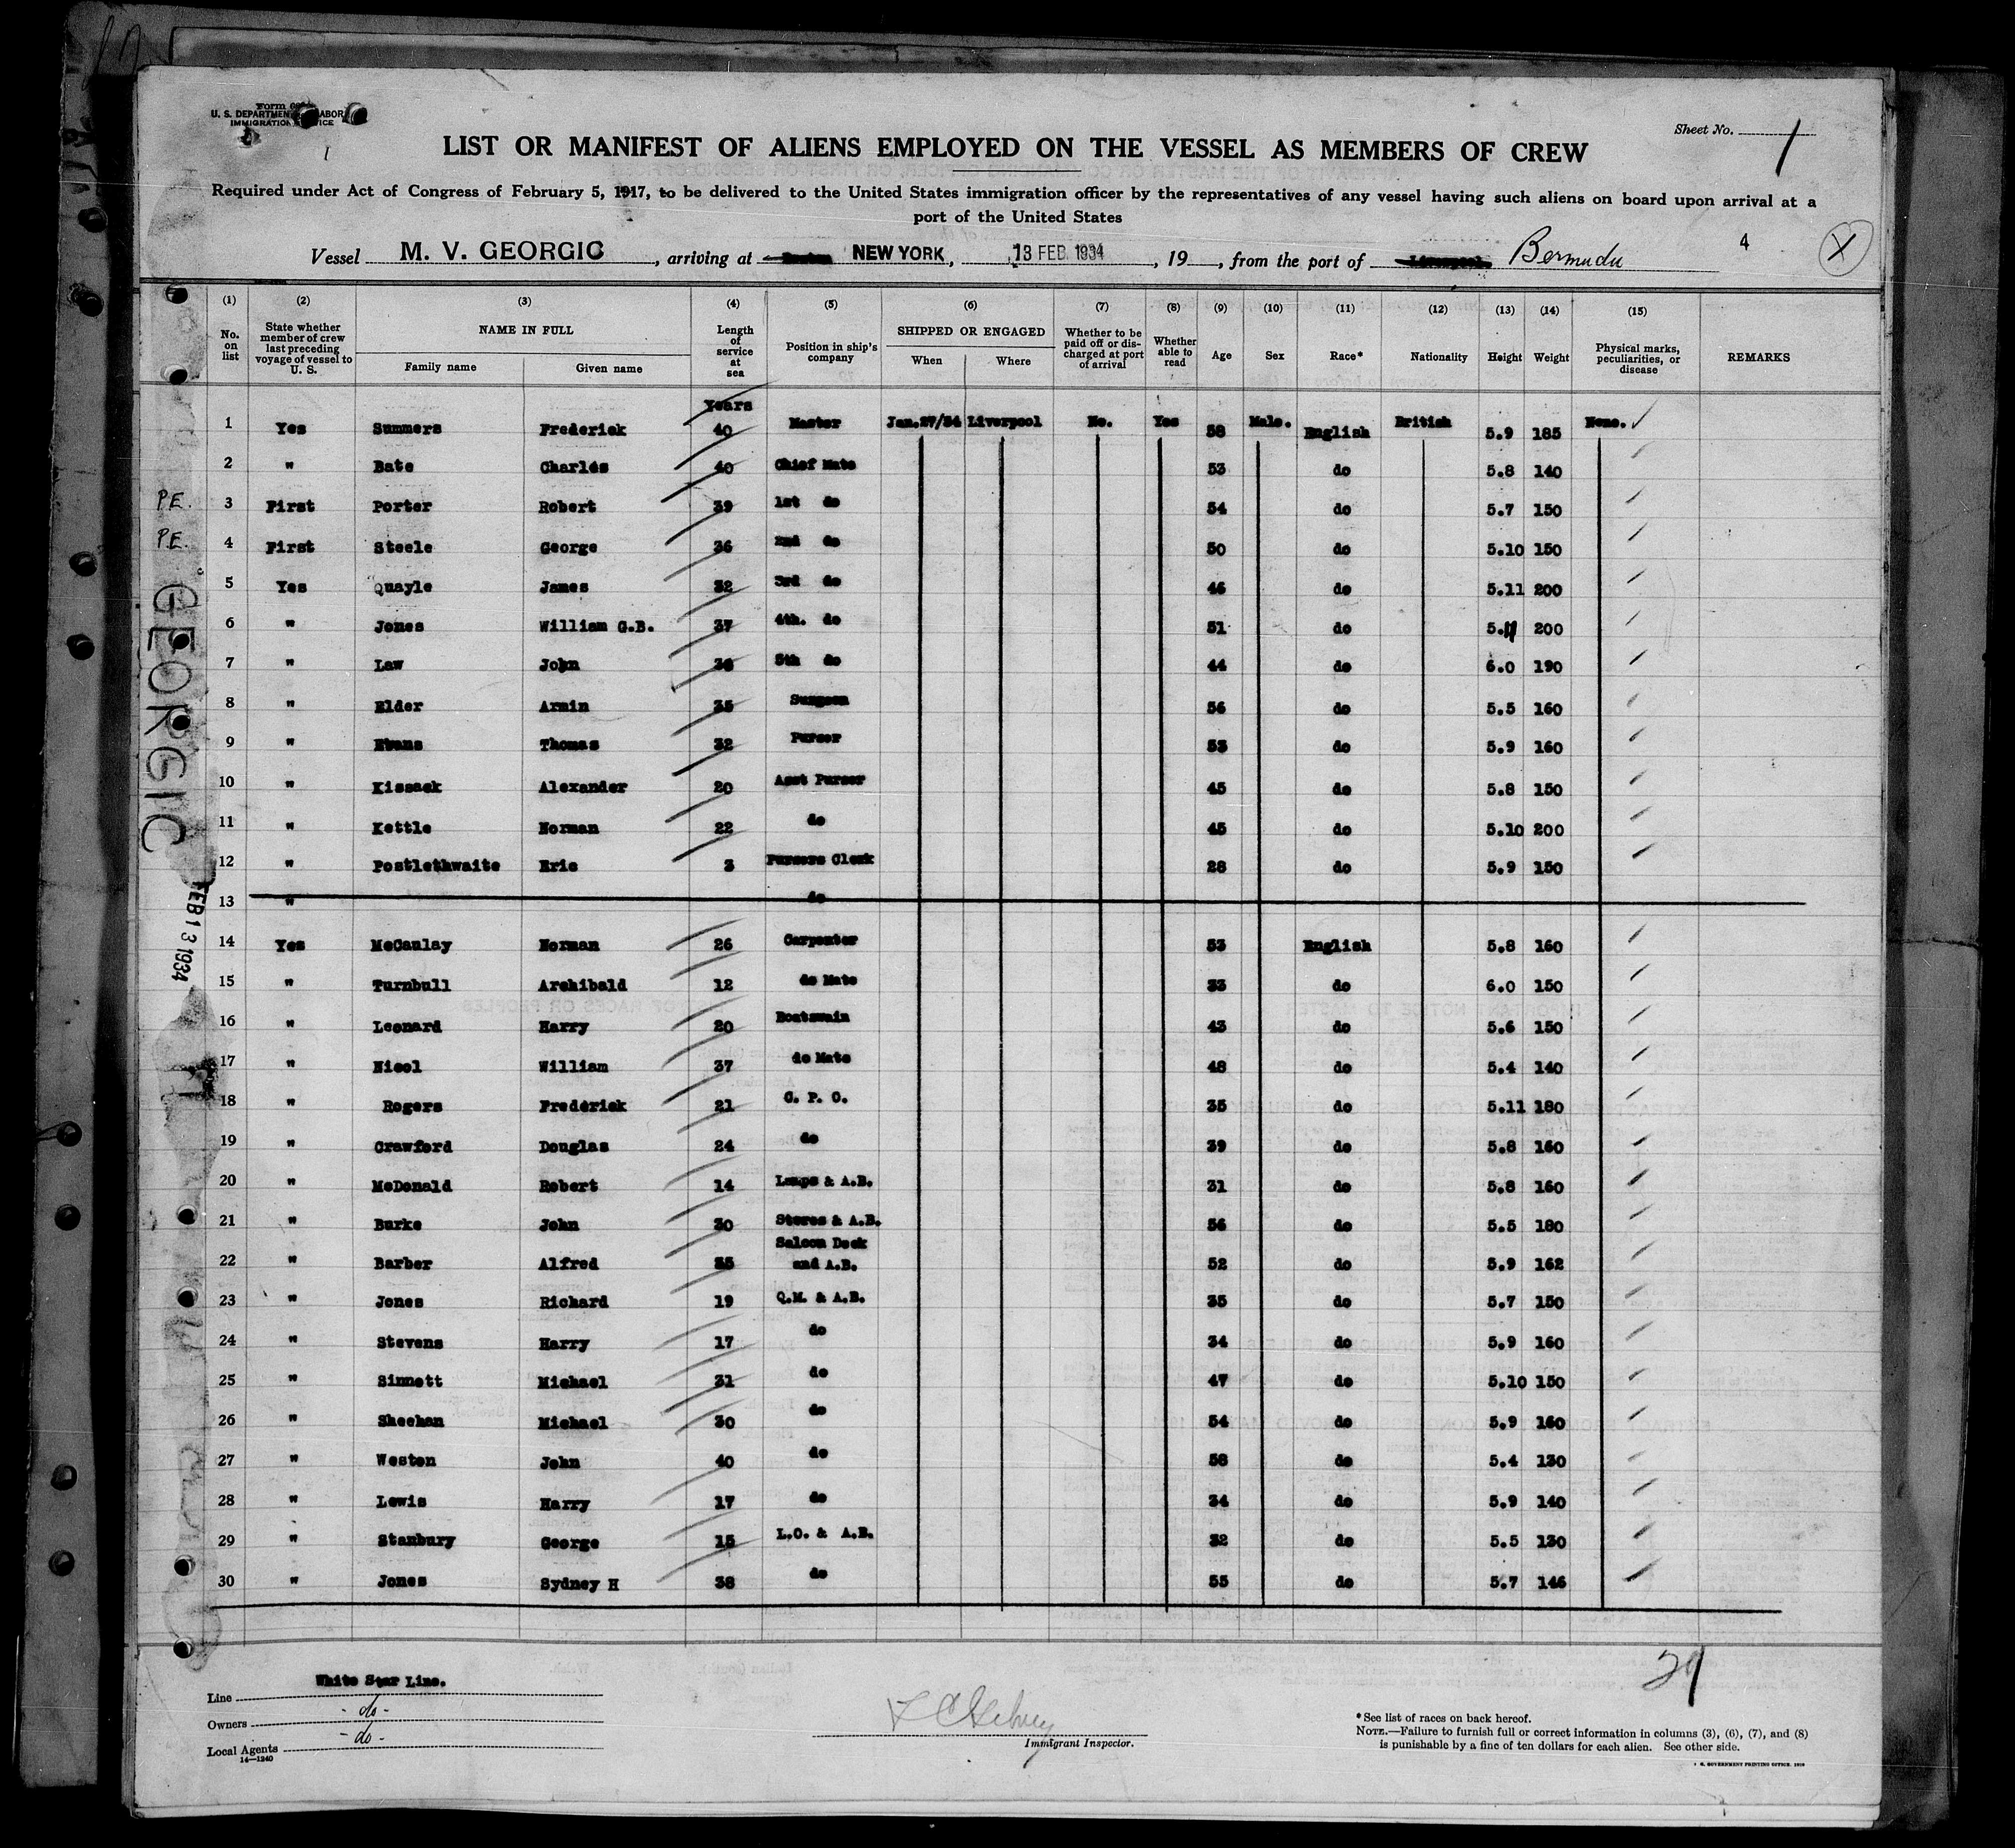 Form 68
U. S. DEPARTMENT LABOR
IMMIGRATION SERVICE
Sheet No. 1
LIST OR MANIFEST OF ALIENS EMPLOYED ON THE VESSEL AS MEMBERS OF CREW
Required under Act of Congress of February 5, 1917, to be delivered to the United States immigration officer by the representatives of any vessel having such aliens on board upon arrival at a
port of the United States
Vessel M. V. GEORGIC, arriving at Boston NEW YORK, 13 FEB 1934, 19 , from the port of Liverpool Bermuda 4 X
(1) (2) (3) (4) (5) (6) (7) (8) (9) (10) (11) (12) (13) (14) (15)
No. on list State whether member of crew last preceding voyage of vessel to U. S. NAME IN FULL Family name Given name Length of service at sea Position in ship's company SHIPPED OR ENGAGED When Where Whether to be paid off or discharged at port of arrival Whether able to read Age Sex Race* Nationality Height Weight Physical marks, peculiarities, or disease REMARKS
Years
1 Yes Summers Frederick 40 Master Jan.27/34 Liverpool No. Yes 58 Male. English British 5.9 185 None.
2 " Bate Charles 40 Chief Mate 53 do 5.8 140
P.E. 3 First Porter Robert 39 1st do 54 do 5.7 150
P.E. 4 First Steele George 36 2nd do 50 do 5.10 150
5 Yes Quayle James 32 3rd do 46 do 5.11 200
6 " Jones William G.B. 37 4th. do 51 do 5.11 200
7 " Law John 30 5th do 44 do 6.0 190
8 " Elder Armin 35 Surgeon 56 do 5.5 160
9 " Evans Thomas 32 Purser 53 do 5.9 160
10 " Kissack Alexander 20 Asst Purser 45 do 5.8 150
11 " Kettle Norman 22 do 45 do 5.10 200
12 " Postlethwaite Eric 3 Pursers Clerk 28 do 5.9 150
13 " do
14 Yes McCaulay Norman 26 Carpenter 53 English 5.8 160
15 " Turnbull Archibald 12 do Mate 33 do 6.0 150
16 " Leonard Harry 20 Boatswain 43 do 5.6 150
17 " Nicol William 37 do Mate 48 do 5.4 140
18 " Rogers Frederick 21 C. P. O. 35 do 5.11 180
19 " Crawford Douglas 24 do 39 do 5.8 160
20 " McDonald Robert 14 Lamps & A.B. 31 do 5.8 160
21 " Burke John 30 Stores & A.B. 56 do 5.5 180
22 " Barber Alfred 35 Saloon Deck and A.B. 52 do 5.9 162
23 " Jones Richard 19 Q.M. & A.B. 35 do 5.7 150
24 " Stevens Harry 17 do 34 do 5.9 160
25 " Sinnott Michael 31 do 47 do 5.10 150
26 " Sheehan Michael 30 do 54 do 5.9 160
27 " Weston John 40 do 58 do 5.4 130
28 " Lewis Harry 17 do 34 do 5.9 140
29 " Stanbury George 15 L.O. & A.B. 32 do 5.5 130
30 " Jones Sydney H 38 do 55 do 5.7 146
GEORGIC
FEB 13 1934
29
Line White Star Line.
Owners - do -
Local Agents - do -
14—1240
Immigrant Inspector.
*See list of races on back hereof.
NOTE.—Failure to furnish full or correct information in columns (3), (6), (7), and (8)
is punishable by a fine of ten dollars for each alien. See other side.
U. S. GOVERNMENT PRINTING OFFICE